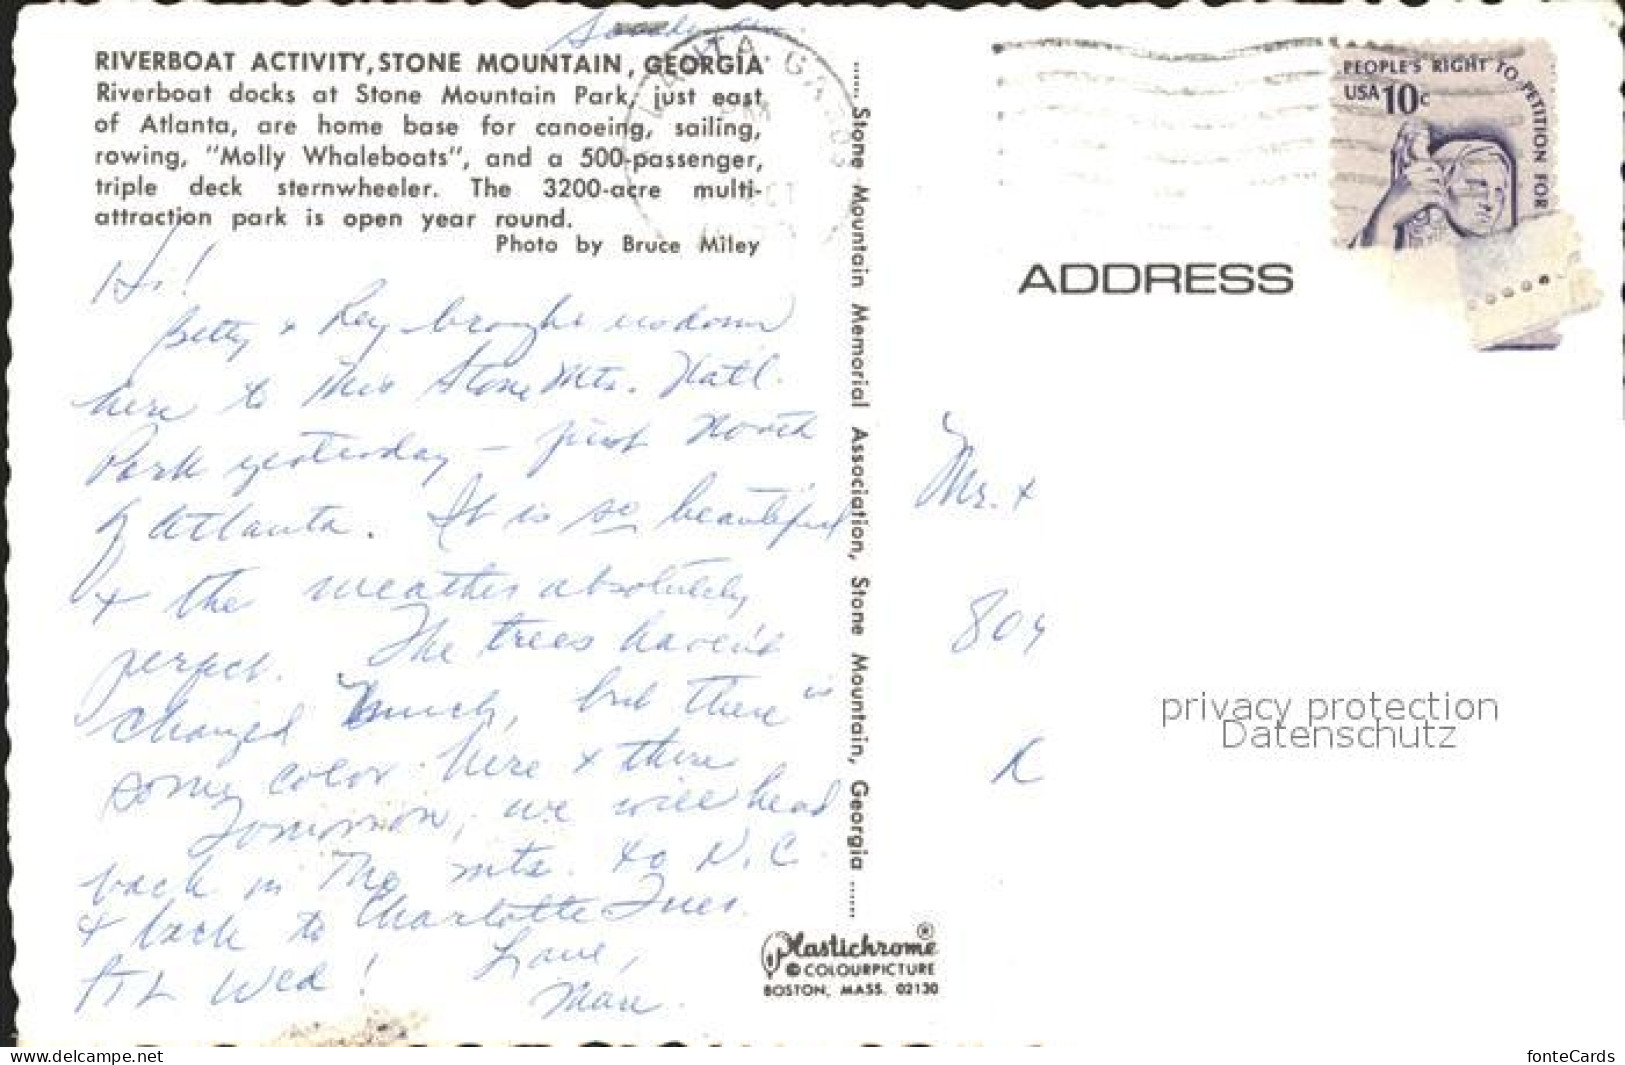 Sunday
RIVERBOAT ACTIVITY, STONE MOUNTAIN, GEORGIA
Riverboat docks at Stone Mountain Park, just east
of Atlanta, are home base for canoeing, sailing,
rowing, "Molly Whaleboats", and a 500-passenger,
triple deck sternwheeler. The 3200-acre multi-
attraction park is open year round.
Photo by Bruce Miley
Hi!
Betty + Ray brought us down
here to this Stone Mts. Natl.
Park yesterday – just North
of Atlanta. It is so beautiful
+ the weather absolutely
perfect. The trees haven't
changed much, but there is
some color here & there
Tomorrow, we will head
back in the mts. to N.C.
+ back to Charlotte Tues.
Wed!
Love,
...... Stone Mountain Memorial Association, Stone Mountain, Georgia ......
Plastichrome®
© COLOURPICTURE
BOSTON, MASS. 02130
PEOPLE'S RIGHT TO PETITION FOR
USA 10c
ADDRESS
Mr. +
804
privacy protection
Datenschutz
https://www.ansichtskarten-center.de
fonteCards